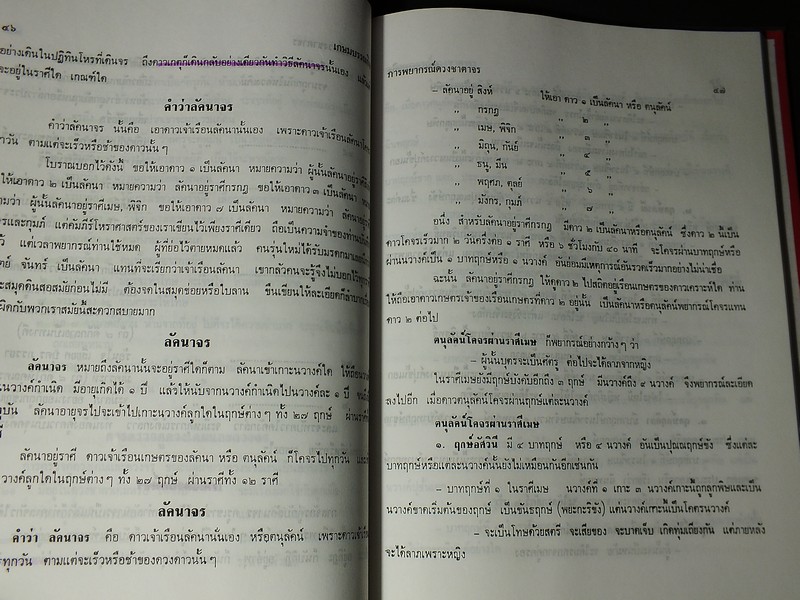 ๔๖
เกณฑ์
อย่างเดินในปฏิทินโหรที่เดินจร ถึงดาวเกตุก็เดินกลับอย่างเดียวกันทำวิธีลัคนาจรนั้นเอง
จะอยู่ในราศีใด เกณฑ์ใด
คำว่าลัคนาจร
คำว่าลัคนาจร นั้นคือ เอาดาวเจ้าเรือนลัคนานั้นเอง เพราะดาวเจ้าเรือนลัคนา
ทุกวัน ตามแต่จะเร็วหรือช้าของดาวนั้น ๆ
โบราณบอกไว้ดังนี้ ขอให้เอาดาว ๑ เป็นลัคนา หมายความว่า ผู้นั้นลัคนาอยู่ราศี
ให้เอาดาว ๒ เป็นลัคนา หมายความว่า ลัคนาอยู่ราศีกรกฎ ขอให้เอาดาว ๓ เป็นลัคนา
ความว่า ผู้นั้นลัคนาอยู่ราศีเมษ, พิจิก ขอให้เอาดาว ๗ เป็นลัคนา หมายความว่า ลัคนา
กรและกุมภ์ แต่คัมภีร์โหราศาสตร์ของเราเขียนไว้เพียงราศีเดียว ถือเป็นความจำของท่าน
แต่เวลาพยากรณ์ท่านใช้หมด ผู้ที่ย่อไว้ตายหมดแล้ว คนรุ่นใหม่ได้รับมรดกมา
จันทร์ เป็นลัคนา แทนที่จะเรียกว่าเจ้าเรือนลัคนา เขากลัวคนจะรู้จึงไม่บอกไว้
สมุดดินสอสมัยก่อนไม่มี ต้องจดในสมุดข่อยหรือใบลาน ขืนเขียนให้ละเอียดก็ลำบาก
ผิดกับพวกเราสมัยนี้สะดวกสบายมาก
ลัคนาจร
ลัคนาจร หมายถึงลัคนานั้นจะอยู่ราศีใดก็ตาม ลัคนาเข้าเกาะนวางค์ใด ให้ถือ
นวางค์กำเนิด มีอายุเกิดได้ ๑ ปี แล้วให้นับจากนวางค์กำเนิดไปนวางค์ละ ๑ ปี
ลัคนาอายุจรไปจะเข้าไปเกาะนวางค์ลูกใดในฤกษ์ต่าง ๆ ทั้ง ๒๗ ฤกษ์
ลัคนาอายุราศี ดาวเจ้าเรือนเกษตรของลัคนา หรือ ตนุลัคน์ ก็โคจรไปทุกวัน
นวางค์ลูกใดในฤกษ์ต่าง ๆ ทั้ง ๒๗ ฤกษ์ ผ่านราศีทั้ง ๑๒ ราศี
ลัคนาจร
คำว่า ลัคนาจร คือ ดาวเจ้าเรือนลัคนานั่นเอง หรือตนุลัคน์ เพราะดาวเจ้า
ทุกวัน ตามแต่จะเร็วหรือช้าของดวงดาวนั้น ๆ
การพยากรณ์ดวงชาตาจร
๔๗
– ลัคนาอยู่ สิงห์ ให้เอา ดาว ๑ เป็นลัคนา หรือ ตนุลัคน์
,, กรกฎ ,, ๒ ,,
,, เมษ, พิจิก ,, ๓ ,,
,, มิถุน, กันย์ ,, ๔ ,,
,, ธนู, มีน ,, ๕ ,,
,, พฤศภ, ตุลย์ ,, ๖ ,,
,, มังกร, กุมภ์ ,, ๗ ,,
อนึ่ง สำหรับลัคนาอยู่ราศีกรกฎ มีดาว ๒ เป็นลัคนาหรือตนุลัคน์ ซึ่งดาว ๒ นี้เป็น
ดาวโคจรเร็วมาก ๒ วันครึ่งต่อ ๑ ราศี หรือ ๖ ชั่วโมงกับ ๔๐ นาที จะโคจรผ่านบาทฤกษ์หรือ
ผ่านนวางค์เป็น ๑ บาทฤกษ์หรือ ๑ นวางค์ อันย่อมมีเหตุการณ์อันรวดเร็วมากอย่างไม่น่าเชื่อ
ฉะนั้น ลัคนาอยู่ราศีกรกฎ ให้ดูดาว ๒ ไปสถิตอยู่เรือนเกษตรของดาวเคราะห์ใด ท่าน
ให้ถือเอาดาวเกษตรเจ้าของเรือนเกษตรที่ดาว ๒ อยู่นั้น เป็นลัคนาหรือตนุลัคน์พยากรณ์โคจรแทน
ดาว ๒ ต่อไป
ตนุลัคน์โคจรผ่านราศีเมษ ก็พยากรณ์อย่างกว้าง ๆ ว่า
– ผู้นั้นบุตรจะเป็นศัตรู ต่อไปจะได้ลาภจากหญิง
ในราศีเมษยังมีฤกษ์บังคับอีกถึง ๓ ฤกษ์ มีนวางค์ถึง ๙ นวางค์ จึงพยากรณ์ละเอียด
ลงไปอีก เมื่อดาวตนุลัคน์โคจรผ่านฤกษ์แต่ละนวางค์
ตนุลัคน์โคจรผ่านราศีเมษ
๑. ฤกษ์อัศวินี มี ๔ บาทฤกษ์ หรือ ๔ นวางค์ อันเป็นปุณณฤกษ์ขัง ซึ่งแต่ละ
บาทฤกษ์หรือแต่ละนวางค์นั้นยังไม่เหมือนกันอีกเช่นกัน
– บาทฤกษ์ที่ ๑ ในราศีเมษ นวางค์ที่ ๑ เกาะ ๓ นวางค์เกาะนี้ถูกลูกพิษและเป็น
นวางค์ขาดเริ่มต้นของฤกษ์ เป็นขณะฤกษ์ (พยะกะริขัง) แต่นวางค์เกาะนี้เป็นโคตรนวางค์
– จะเป็นโทษด้วยสตรี จะเสียของ จะบาดเจ็บ เกิดทุ่มเถียงกัน แต่ภายหลัง
จะได้ลาภเพราะหญิง